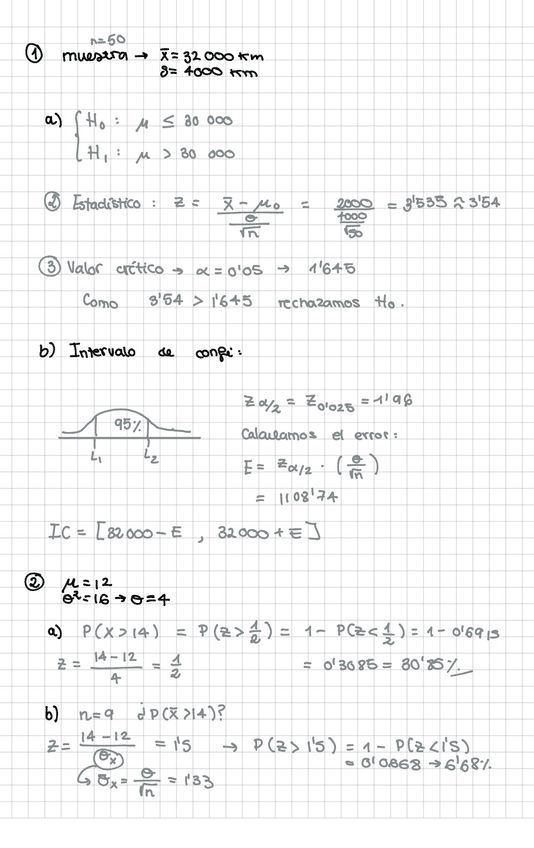 n=50
① muestra → x̄ = 32 000 km
s = 4000 km
a) { H₀ : μ ≤ 30 000
H₁ : μ > 30 000
② Estadístico : z = (x̄ - μ₀)/(σ/√n) = 2000/(4000/√50) = 3'535 ≈ 3'54
③ Valor crítico → α = 0'05 → 1'645
Como 3'54 > 1'645 rechazamos H₀.
b) Intervalo de confi:
95%
L₁ L₂
Z α/2 = Z 0'025 = 1'96
Calculamos el error:
E = Z α/2 · (σ/√n)
= 1108'74
IC = [32 000 - E , 32 000 + E]
② μ = 12
σ² = 16 → σ = 4
a) P(X > 14) = P(Z > 1/2) = 1 - P(Z < 1/2) = 1 - 0'6915
z = (14 - 12)/4 = 1/2 = 0'3085 = 30'85%
b) n = 9 ¿P(x̄ > 14)?
z = (14 - 12)/σx = 1'5 → P(Z > 1'5) = 1 - P(Z < 1'5)
= 0'0668 → 6'68%
↪ σx = σ/√n = 1'33